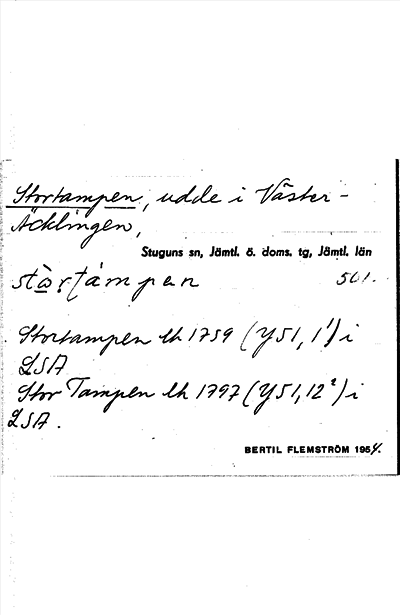 Stortampen, udde i Väster-
Äcklingen,
Stuguns sn, Jämtl. ö. doms. tg, Jämtl. län
501.
Stortampen lk 1759 (Y51, 1¹) i
LSA
Stor Tampen lk 1797 (Y51, 12²) i
LSA.
BERTIL FLEMSTRÖM 1954.